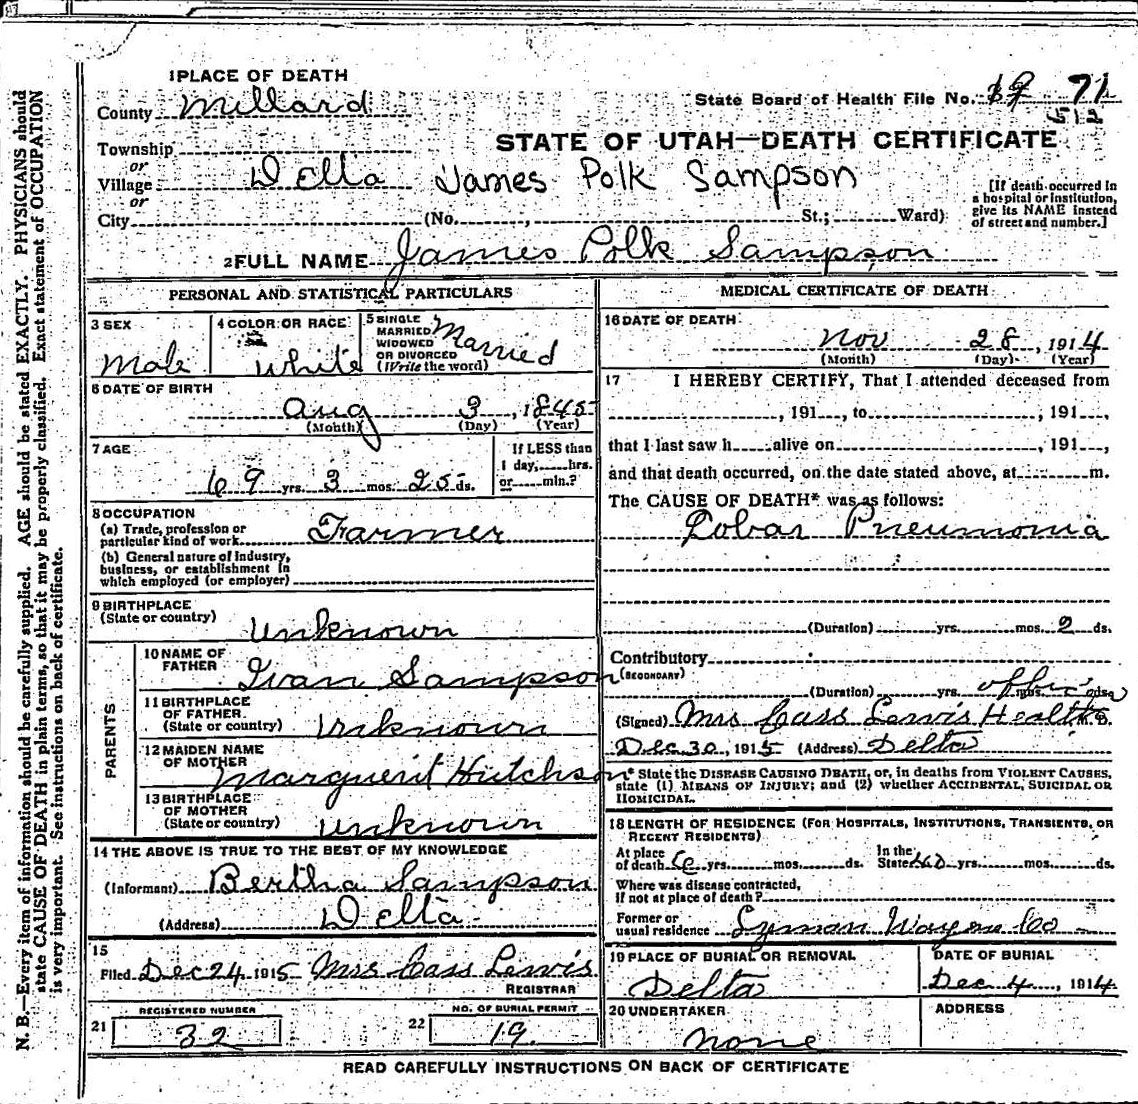 1 PLACE OF DEATH
County Millard
State Board of Health File No. 19 71
512
STATE OF UTAH—DEATH CERTIFICATE
Township
or
Village Della James Polk Sampson
or
City (No. , St.; Ward)
[If death occurred in
a hospital or institution,
give its NAME instead
of street and number.]
2 FULL NAME James Polk Sampson
PERSONAL AND STATISTICAL PARTICULARS
3 SEX
Male
4 COLOR OR RACE
White
5 SINGLE
MARRIED
WIDOWED
OR DIVORCED
(Write the word)
Married
6 DATE OF BIRTH
Aug 3, 1845
(Month) (Day) (Year)
7 AGE
69 yrs. 3 mos. 25 ds.
If LESS than
1 day, hrs.
or min.?
8 OCCUPATION
(a) Trade, profession or
particular kind of work Farmer
(b) General nature of Industry,
business, or establishment in
which employed (or employer)
9 BIRTHPLACE
(State or country)
Unknown
PARENTS
10 NAME OF
FATHER Ivan Sampson
11 BIRTHPLACE
OF FATHER
(State or country) Unknown
12 MAIDEN NAME
OF MOTHER Marguerit Hutchson
13 BIRTHPLACE
OF MOTHER
(State or country) Unknown
14 THE ABOVE IS TRUE TO THE BEST OF MY KNOWLEDGE
(Informant) Bertha Sampson
(Address) Delta
15
Filed Dec 24, 1915 Mrs Cass Lewis
REGISTRAR
21 REGISTERED NUMBER
32
22 NO. OF BURIAL PERMIT
19
MEDICAL CERTIFICATE OF DEATH
16 DATE OF DEATH
Nov 28, 1914
(Month) (Day) (Year)
17 I HEREBY CERTIFY, That I attended deceased from
, 191 , to , 191 ,
that I last saw h alive on , 191 ,
and that death occurred, on the date stated above, at m.
The CAUSE OF DEATH* was as follows:
Lobar Pneumonia
(Duration) yrs. mos. 9 ds.
Contributory
(SECONDARY)
(Duration) yrs. mos. ds.
(Signed) Mrs Cass Lewis Health M.D.
Dec 30, 1915 (Address) Delta
* State the DISEASE CAUSING DEATH, or, in deaths from VIOLENT CAUSES,
state (1) MEANS OF INJURY; and (2) whether ACCIDENTAL, SUICIDAL OR
HOMICIDAL.
18 LENGTH OF RESIDENCE (FOR HOSPITALS, INSTITUTIONS, TRANSIENTS, OR
RECENT RESIDENTS)
At place
of death 6 yrs. mos. ds.
In the
State yrs. mos. ds.
Where was disease contracted,
if not at place of death?
Former or
usual residence Lyman Wayne Co
19 PLACE OF BURIAL OR REMOVAL
Delta
DATE OF BURIAL
Dec 4, 1914
20 UNDERTAKER
none
ADDRESS
READ CAREFULLY INSTRUCTIONS ON BACK OF CERTIFICATE
N. B.—Every item of information should be carefully supplied. AGE should be stated EXACTLY. PHYSICIANS should
state CAUSE OF DEATH in plain terms, so that it may be properly classified. Exact statement of OCCUPATION
is very important. See instructions on back of certificate.